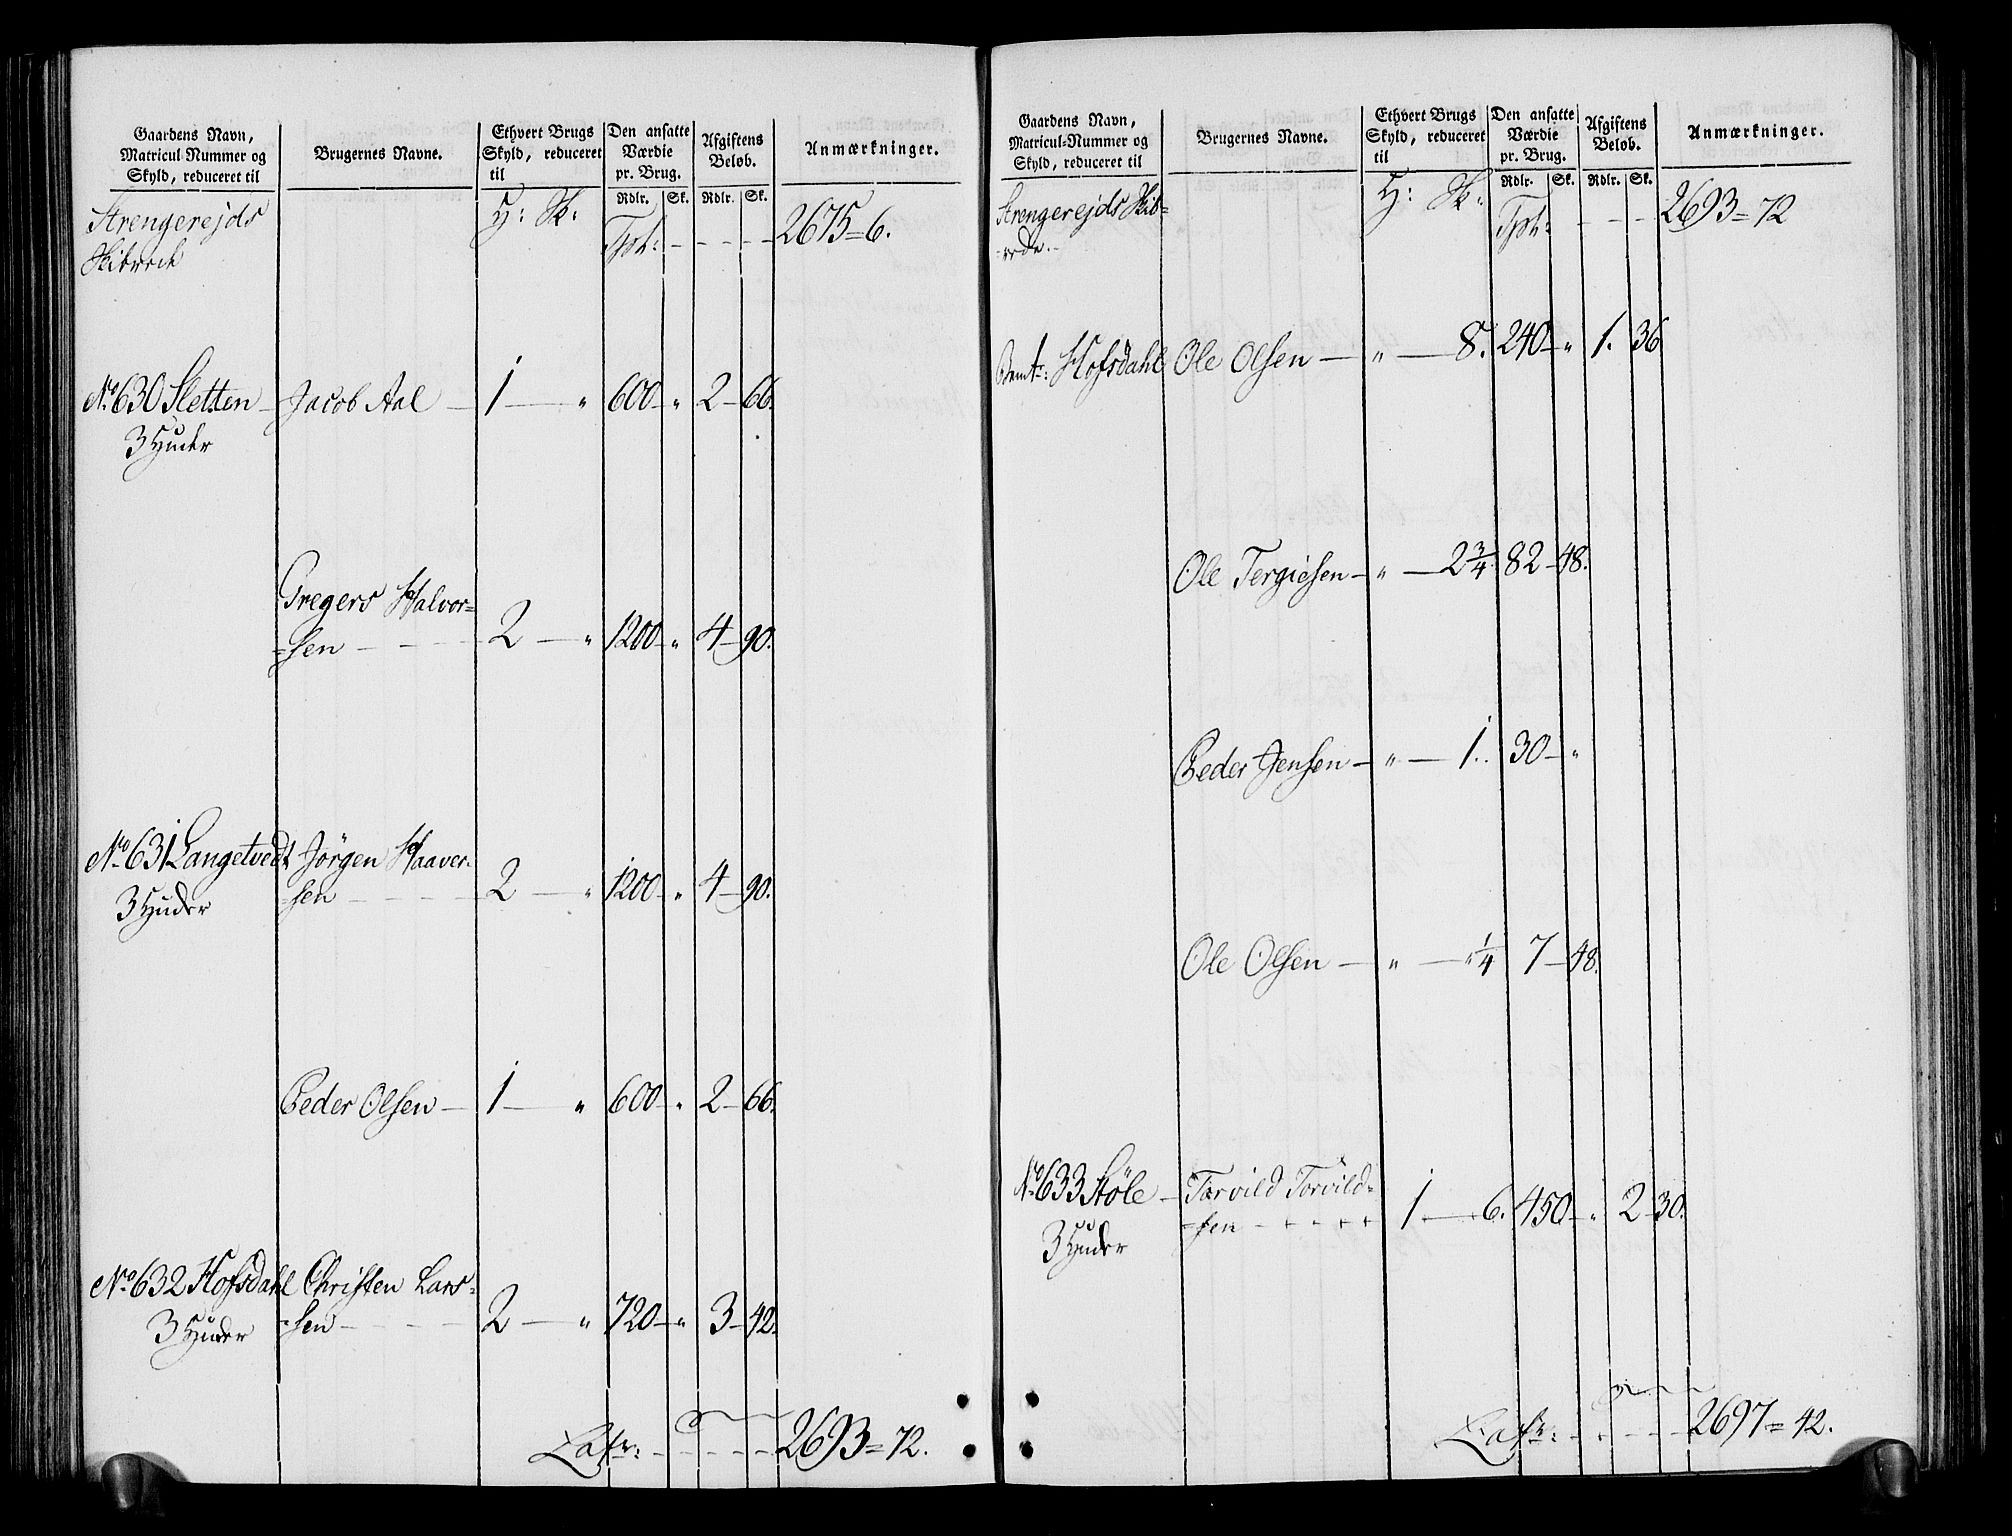 Gaardens Navn,
Matricul-Nummer og
Skyld, reduceret til
Brugernes Navne.
Ethvert Brugs
Skyld, reduceret
til
Den ansatte
Værdie
pr. Brug.
Rdlr. Sk.
Afgiftens
Beløb.
Rdlr. Sk.
Anmærkninger.
Strengerejds H: Sk: Tpt: - - - - 2675=6.
Skibrede
No. 630 Sletten — Jacob Aal — 1 — " 600 — " 2 — 66.
3 Huder
Gregers Halvor=
=sen - - - 2 — " 1200 — " 4 — 90.
No. 631 Langetvedt Jörgen Haaver=
3 Huder =sen - - - 2 — " 1200 — " 4 — 90.
Peder Olsen — 1 — " 600 — " 2 — 66.
No. 632 Hofsdahl Christen Lars=
3 Huder =sen - - - 2 — " 720 — " 3 — 42.
Latr: - - - - 2693=72.
Gaardens Navn,
Matricul-Nummer og
Skyld, reduceret til
Brugernes Navne.
Ethvert Brugs
Skyld, reduceret
til
Den ansatte
Værdie
pr. Brug.
Rdlr. Sk.
Afgiftens
Beløb.
Rdlr. Sk.
Anmærkninger.
Strengerejds Skib= H: Sk: Tpt: - - - 2693=72
=rede.
Hofsdahl Ole Olsen — " — 8. 240 — " 1. 36
Ole Tergiesen — " — 2 3/4 82 — 48.
Peder Jensen — " — 1.. 30 — "
Ole Olsen — " — " 1/4 7 — 48.
No. 633 Stöle — Tarvild Torvild=
3 Huder =sen - - - - 1 — 6. 450 — " 2 — 30.
Latr: - - - - 2697=42.